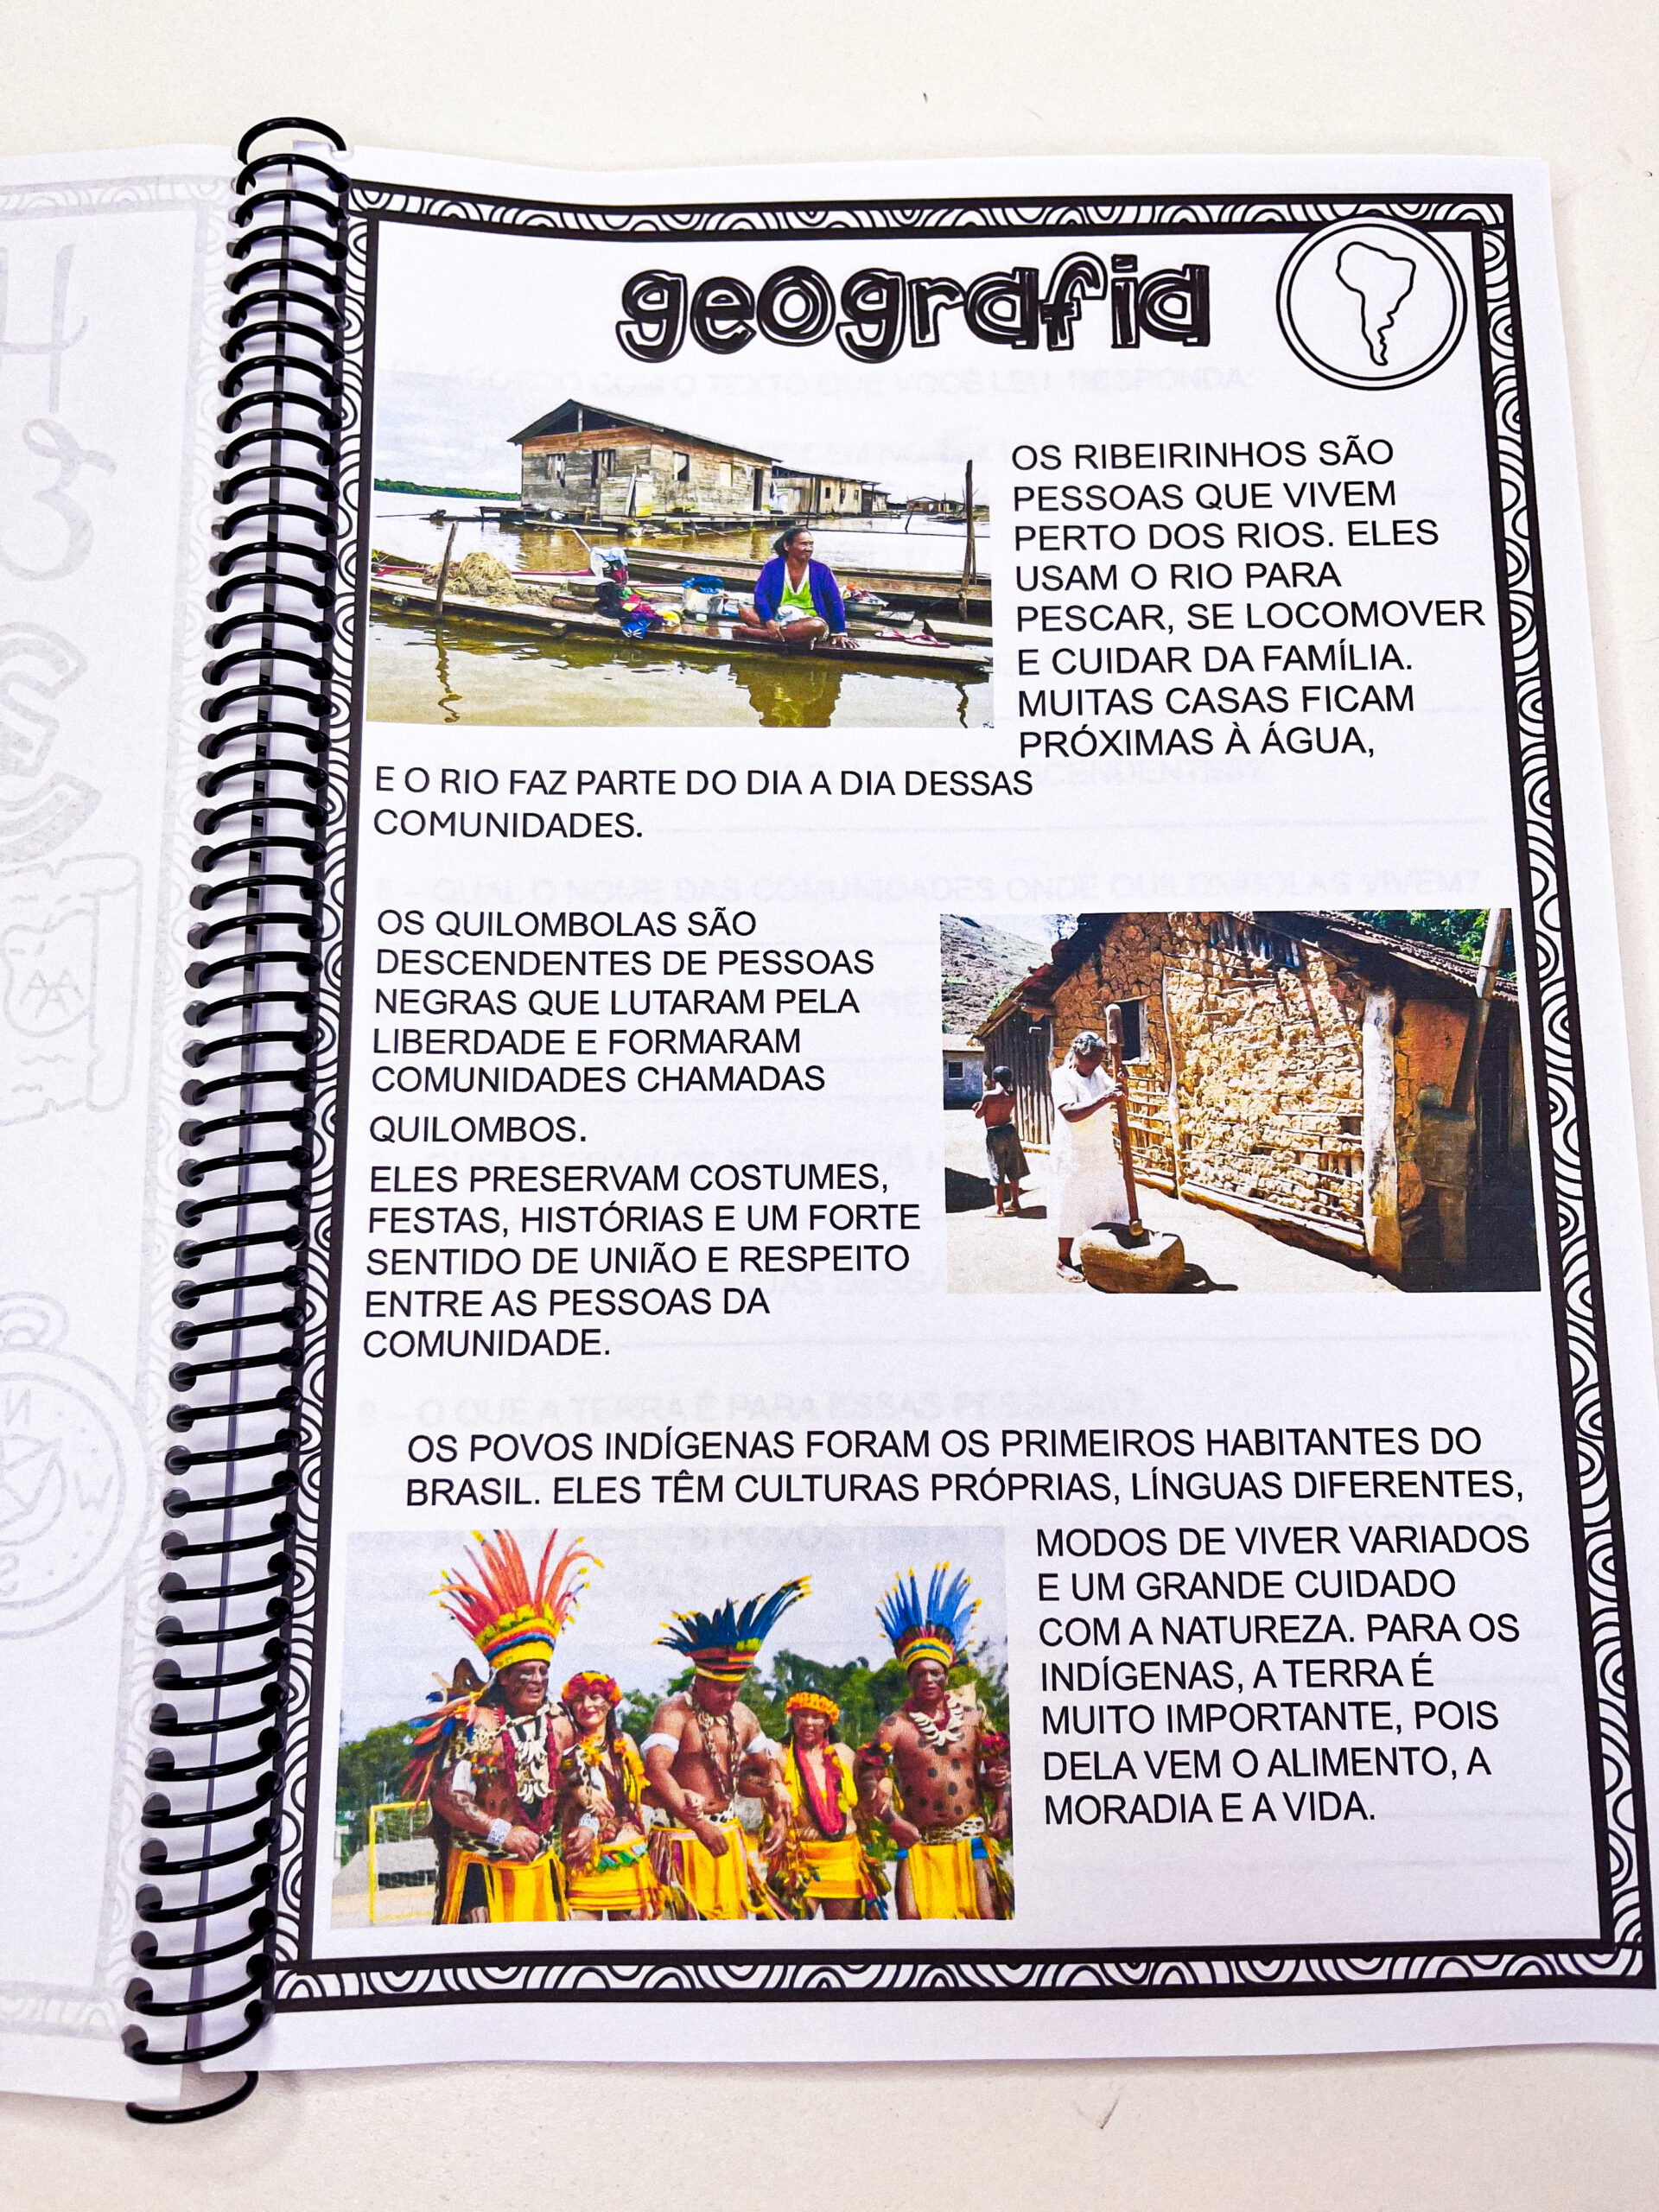 geografia
OS RIBEIRINHOS SÃO
PESSOAS QUE VIVEM
PERTO DOS RIOS. ELES
USAM O RIO PARA
PESCAR, SE LOCOMOVER
E CUIDAR DA FAMÍLIA.
MUITAS CASAS FICAM
PRÓXIMAS À ÁGUA,
E O RIO FAZ PARTE DO DIA A DIA DESSAS
COMUNIDADES.
OS QUILOMBOLAS SÃO
DESCENDENTES DE PESSOAS
NEGRAS QUE LUTARAM PELA
LIBERDADE E FORMARAM
COMUNIDADES CHAMADAS
QUILOMBOS.
ELES PRESERVAM COSTUMES,
FESTAS, HISTÓRIAS E UM FORTE
SENTIDO DE UNIÃO E RESPEITO
ENTRE AS PESSOAS DA
COMUNIDADE.
OS POVOS INDÍGENAS FORAM OS PRIMEIROS HABITANTES DO
BRASIL. ELES TÊM CULTURAS PRÓPRIAS, LÍNGUAS DIFERENTES,
MODOS DE VIVER VARIADOS
E UM GRANDE CUIDADO
COM A NATUREZA. PARA OS
INDÍGENAS, A TERRA É
MUITO IMPORTANTE, POIS
DELA VEM O ALIMENTO, A
MORADIA E A VIDA.